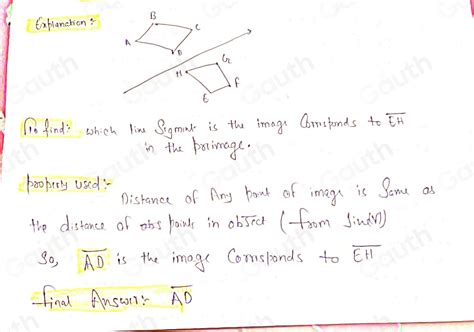 Explanation :-
B
C
A
D
G
H
F
E
To find:- which line Segment is the image Corresponds to EH
in the preimage.
property used:-
Distance of Any point of image is Same as
the distance of points in object (from line)
So, AD is the image Corresponds to EH
final Answer:- AD
Gauth